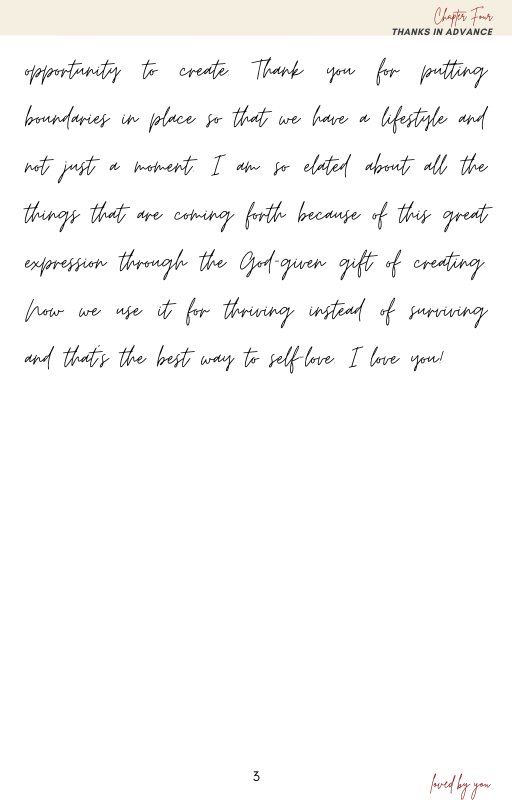 Chapter Four
THANKS IN ADVANCE
opportunity to create. Thank you for putting
boundaries in place so that we have a lifestyle and
not just a moment. I am so elated about all the
things that are coming forth because of this great
expression through the God-given gift of creating.
Now we use it for thriving instead of surviving
and that's the best way to self-love. I love you!
3
loved by you